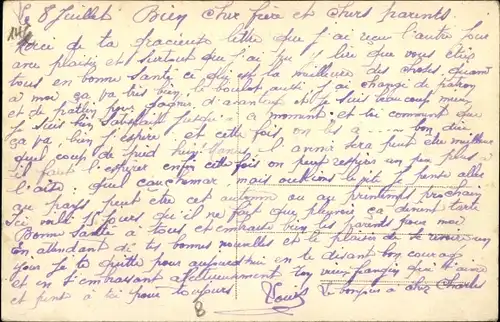 Le 8 Juillet Bien cher frère et chers parents
Merci de ta gracieuse lettre que j'ai reçu l'autre jour
avec plaisir et surtout que j'ai pu lire que vous étiez
tous en bonne santé ce qui est la meilleure des choses quant
à moi ça va très bien, le boulot aussi j'ai changé de patron
et de patelin pour gagner d'avantage et je suis beaucoup mieux
je suis bien satisfait jusqu'à ce moment et toi comment que
ça va, bien j'espère et cette fois, on les a bon dieu
quel coup de pied l'année sera peut être meilleure
il faut l'espérer enfin cette fois on peut respirer un peu plus à
l'aise quel cauchemar mais oublions le pit je pense aller
au pays peut être cet automne ou au printemps prochain
Ici voilà 15 jours qu'il ne fait que pleuvoir ça devient
Bonne santé à tous et embrasse bien les parents pour moi
En attendant de tes bonnes nouvelles et le plaisir de te revoir un
jour Je te quitte pour aujourd'hui en te disant bon courage
et en t'embrassant affectueusement ton vieux frangin que t'aime
et pense à toi pour toujours Louis
Le bonjour à chez Charles
8